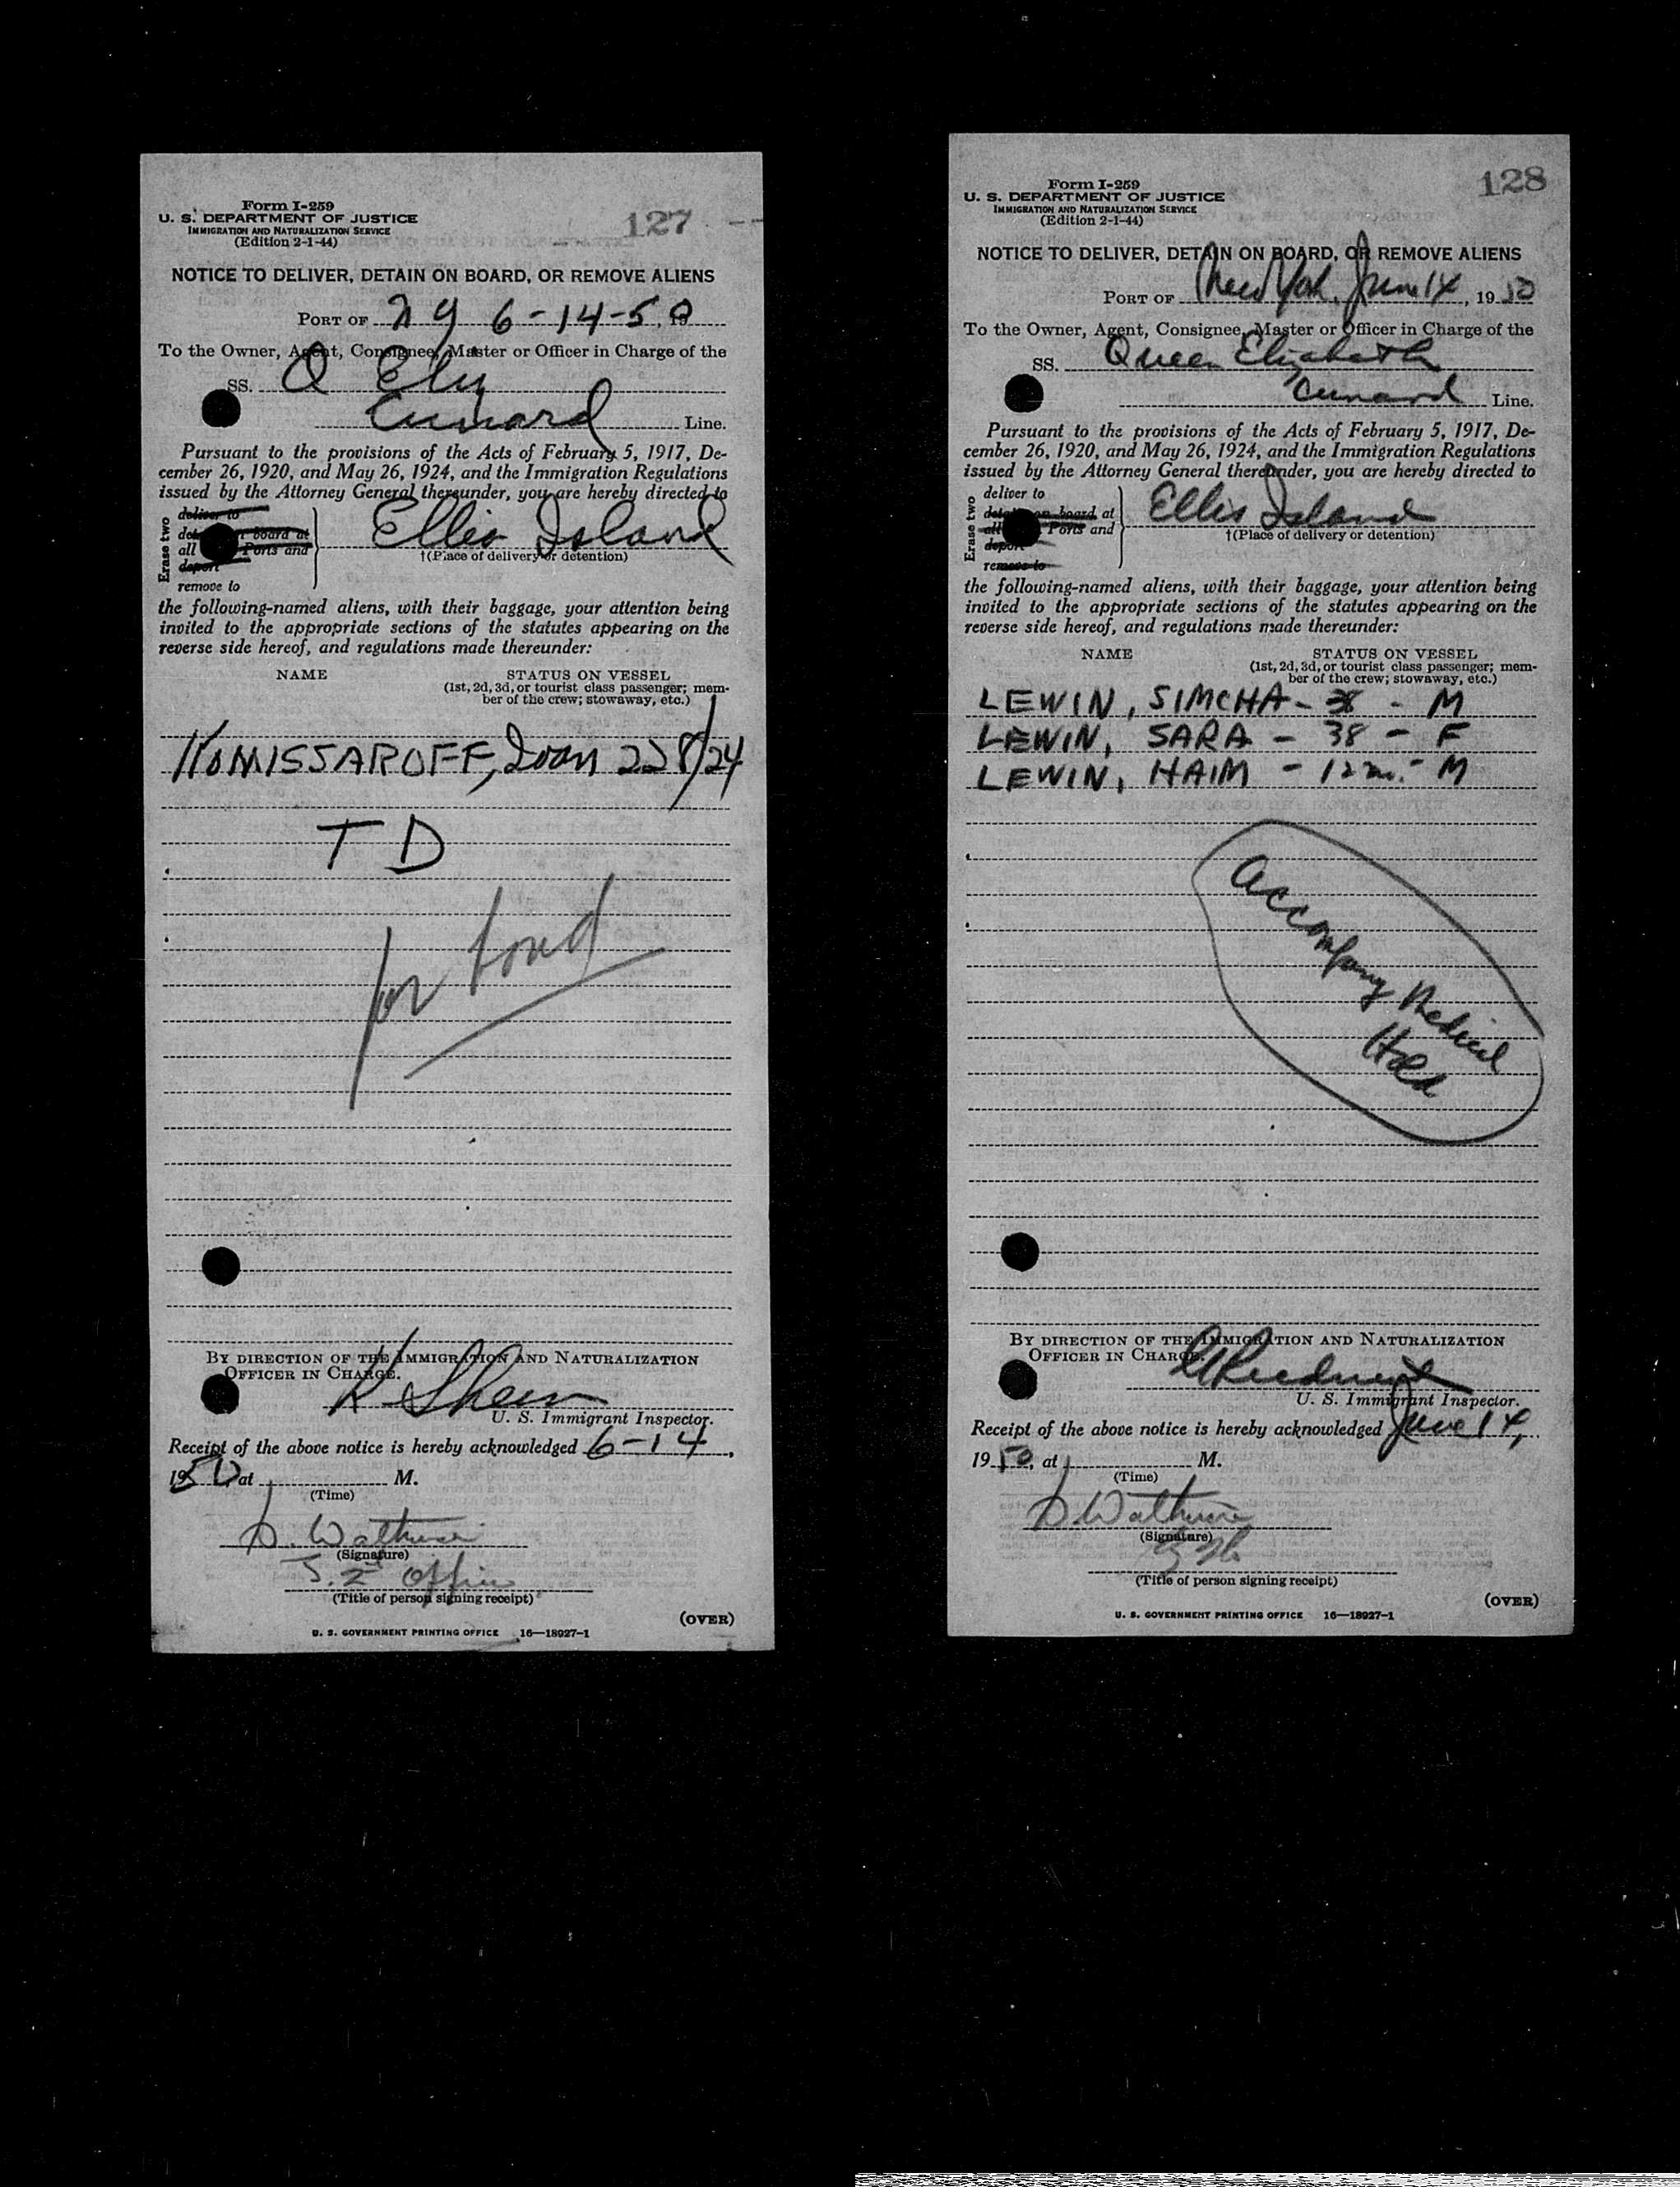 127
Form I-259
U. S. DEPARTMENT OF JUSTICE
IMMIGRATION AND NATURALIZATION SERVICE
(Edition 2-1-44)
NOTICE TO DELIVER, DETAIN ON BOARD, OR REMOVE ALIENS
PORT OF N Y 6-14-50
To the Owner, Agent, Consignee, Master or Officer in Charge of the
SS. Q Eliz
Cunard Line.
Pursuant to the provisions of the Acts of February 5, 1917, De-
cember 26, 1920, and May 26, 1924, and the Immigration Regulations
issued by the Attorney General thereunder, you are hereby directed to
Erase two
deliver to
board at
all Ports and
deport
remove to
Ellis Island
†(Place of delivery or detention)
the following-named aliens, with their baggage, your attention being
invited to the appropriate sections of the statutes appearing on the
reverse side hereof, and regulations made thereunder:
NAME STATUS ON VESSEL
(1st, 2d, 3d, or tourist class passenger; mem-
ber of the crew; stowaway, etc.)
KOMISSAROFF, 228/24
T D
for
BY DIRECTION OF THE IMMIGRATION AND NATURALIZATION
OFFICER IN CHARGE.
K Shea
U. S. Immigrant Inspector.
Receipt of the above notice is hereby acknowledged 6-14,
1950 at M.
(Time)
(Signature)
Office
(Title of person signing receipt)
(OVER)
U. S. GOVERNMENT PRINTING OFFICE 16—18927-1
128
Form I-259
U. S. DEPARTMENT OF JUSTICE
IMMIGRATION AND NATURALIZATION SERVICE
(Edition 2-1-44)
NOTICE TO DELIVER, DETAIN ON BOARD, OR REMOVE ALIENS
PORT OF New York, June 14, 1950
To the Owner, Agent, Consignee, Master or Officer in Charge of the
SS. Queen Elizabeth
Cunard Line.
Pursuant to the provisions of the Acts of February 5, 1917, De-
cember 26, 1920, and May 26, 1924, and the Immigration Regulations
issued by the Attorney General thereunder, you are hereby directed to
Erase two
deliver to
on board at
all Ports and
deport
remove to
Ellis Island
†(Place of delivery or detention)
the following-named aliens, with their baggage, your attention being
invited to the appropriate sections of the statutes appearing on the
reverse side hereof, and regulations made thereunder:
NAME STATUS ON VESSEL
(1st, 2d, 3d, or tourist class passenger; mem-
ber of the crew; stowaway, etc.)
LEWIN, SIMCHA - 38 - M
LEWIN, SARA - 38 - F
LEWIN, HAIM - 12 m. - M
Accompany Medical
Hold
BY DIRECTION OF THE IMMIGRATION AND NATURALIZATION
OFFICER IN CHARGE.
U. S. Immigrant Inspector.
Receipt of the above notice is hereby acknowledged June 14,
1950, at M.
(Time)
(Signature)
(Title of person signing receipt)
(OVER)
U. S. GOVERNMENT PRINTING OFFICE 16—18927-1